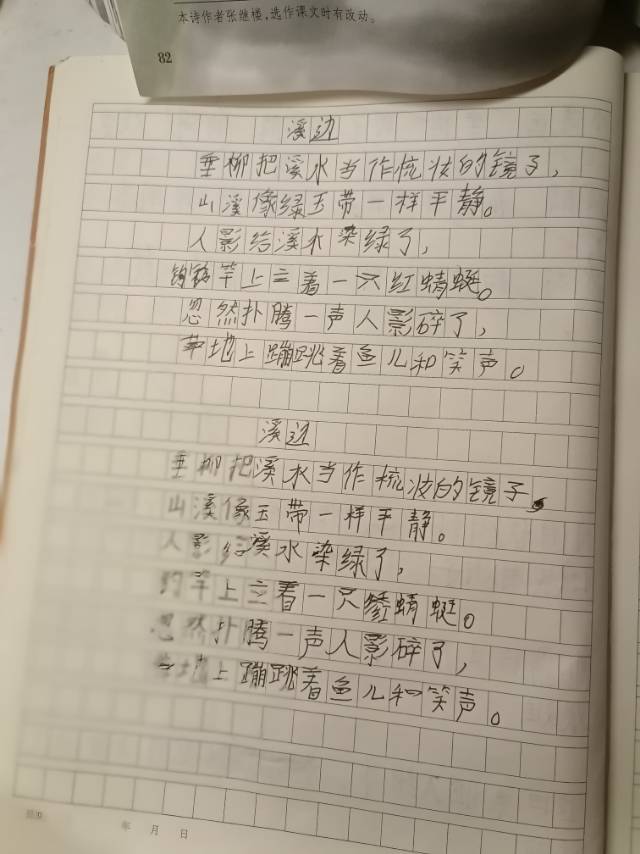 本诗作者张继楼，选作课文时有改动。
82
溪边
垂柳把溪水当作梳妆的镜子，
山溪像绿玉带一样平静。
人影给溪水染绿了，
钓竿上立着一只红蜻蜓。
忽然扑腾一声人影碎了，
草地上蹦跳着鱼儿和笑声。
溪边
垂柳把溪水当作梳妆的镜子，
山溪像玉带一样平静。
人影给溪水染绿了，
钓竿上立着一只红蜻蜓。
忽然扑腾一声人影碎了，
地上蹦跳着鱼儿和笑声。
年 月 日